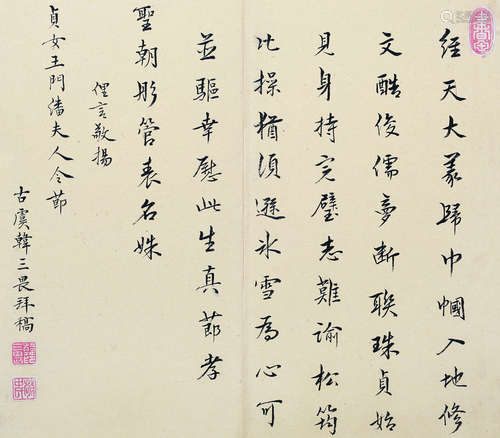 經天大義歸巾幗入地修
文酷俊儒夢斷聯珠貞始
見身持完璧志難諭松筠
比操猶須遜冰雪為心可
並驅幸慰此生真節孝
聖朝彤管表名姝
俚言敬揚
貞女王門潘夫人令節
古虞韓三畏拜稿